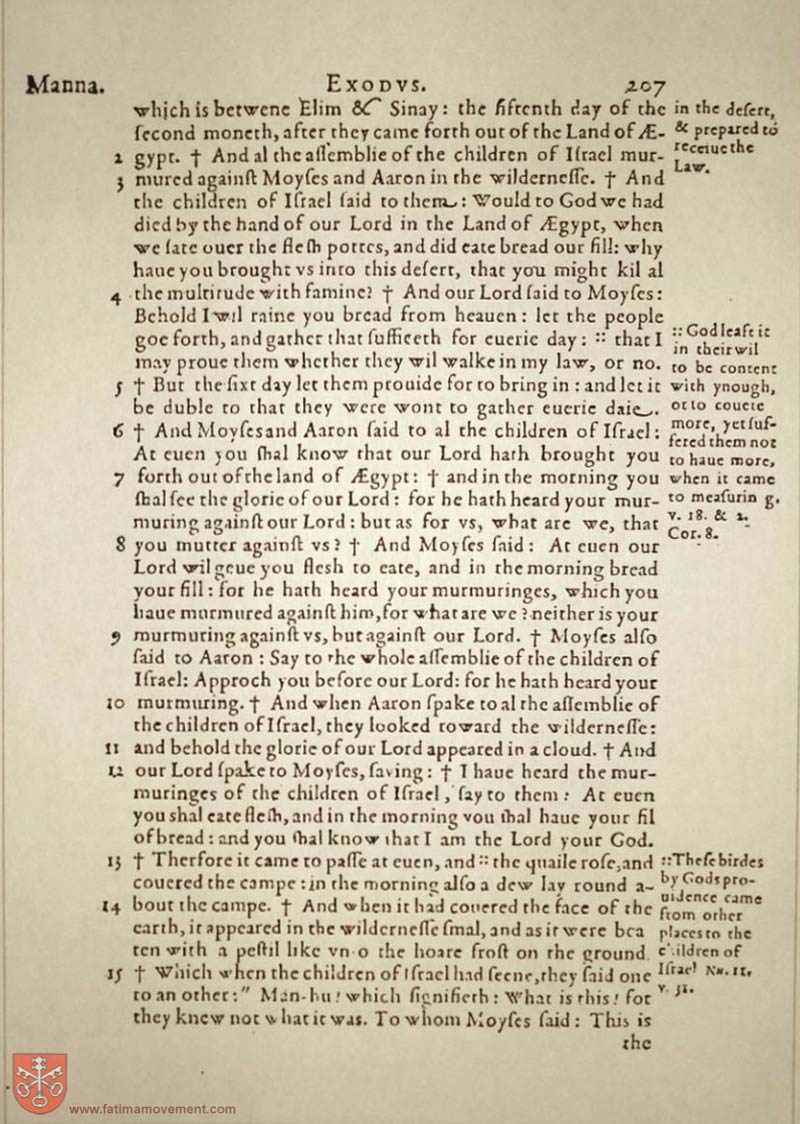 Manna. EXODVS. 207
which is betwene Elim & Sinay: the fiftenth day of the
ſecond moneth, after they came forth out of the Land of Æ-
2 gypt. † And al the aſſemblie of the children of Iſrael mur-
3 mured againſt Moyſes and Aaron in the wilderneſſe. † And
the children of Iſrael ſaid to them: Would to God we had
died by the hand of our Lord in the Land of Ægypt, when
we ſate ouer the fleſh pottes, and did eate bread our fill: why
haue you brought vs into this deſert, that you might kil al
4 the multitude with famine? † And our Lord ſaid to Moyſes:
Behold I wil raine you bread from heauen: let the people
goe forth, and gather that ſufficeth for euerie day: :: that I
may proue them whether they wil walke in my law, or no.
5 † But the ſixt day let them prouide for to bring in: and let it
be duble to that they were wont to gather euerie daie.
6 † And Moyſes and Aaron ſaid to al the children of Iſrael:
At euen you ſhal know that our Lord hath brought you
7 forth out of the land of Ægypt: † and in the morning you
ſhal ſee the glorie of our Lord: for he hath heard your mur-
muring againſt our Lord: but as for vs, what are we, that
8 you mutter againſt vs? † And Moyſes ſaid: At euen our
Lord wil geue you fleſh to eate, and in the morning bread
your fill: for he hath heard your murmuringes, which you
haue murmured againſt him, for what are we? neither is your
9 murmuring againſt vs, but againſt our Lord. † Moyſes alſo
ſaid to Aaron: Say to the whole aſſemblie of the children of
Iſrael: Approch you before our Lord: for he hath heard your
10 murmuring. † And when Aaron ſpake to al the aſſemblie of
the children of Iſrael, they looked toward the wilderneſſe:
11 and behold the glorie of our Lord appeared in a cloud. † And
12 our Lord ſpake to Moyſes, ſaying: † I haue heard the mur-
muringes of the children of Iſrael, ſay to them: At euen
you ſhal eate fleſh, and in the morning you ſhal haue your fil
of bread: and you ſhal know that I am the Lord your God.
13 † Therfore it came to paſſe at euen, and :: the quaile roſe, and
couered the campe: in the morning alſo a dew lay round a-
14 bout the campe. † And when it had couered the face of the
earth, it appeared in the wilderneſſe ſmal, and as it were bea
ten with a peſtil like vnto the hoare froſt on the ground.
15 † Which when the children of Iſrael had ſeene, they ſaid one
to an other: " Man-hu! which ſignifieth: What is this! for
they knew not what it was. To whom Moyſes ſaid: This is
the
in the deſert,
& prepared to
receiue the
Law.
:: God leaft it
in their wil
to be content
with ynough,
or to couete
more, yet ſuf-
fered them not
to haue more,
when it came
to meaſuring.
v. 18. & 2.
Cor. 8.
:: Theſe birdes
by Gods pro-
uidence came
from other
places to the
children of
Iſrael Nu. 11.
v. 31.
www.fatimamovement.com